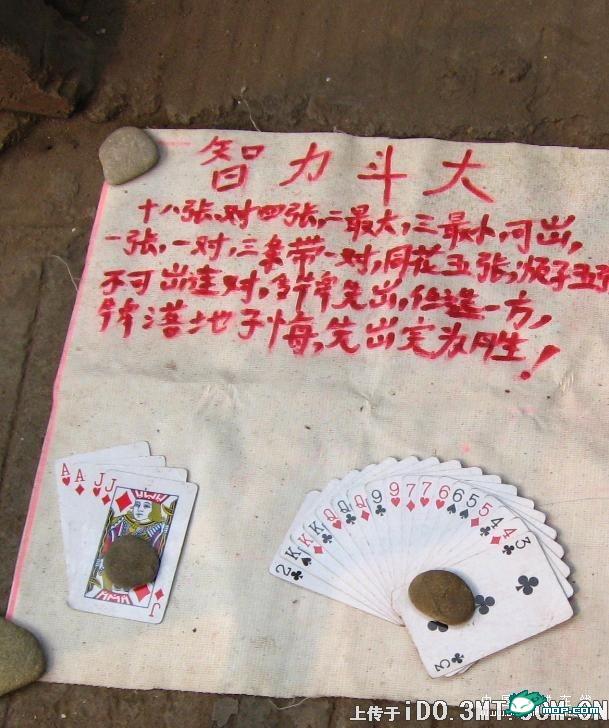 智力斗大
十八张,对四张,二最大,三最小,可出,
一张,一对,三条带一对,同花五张,顺子五
不可出连对,多牌先出,任选一方,
牌落地子悔,先出完为胜!
A A J J
J
2 K K K Q Q Q 9 9 7 7 6 6 5 5 4 4 3
3
上传于 iDO.3MT.COM.CN
MOP.COM